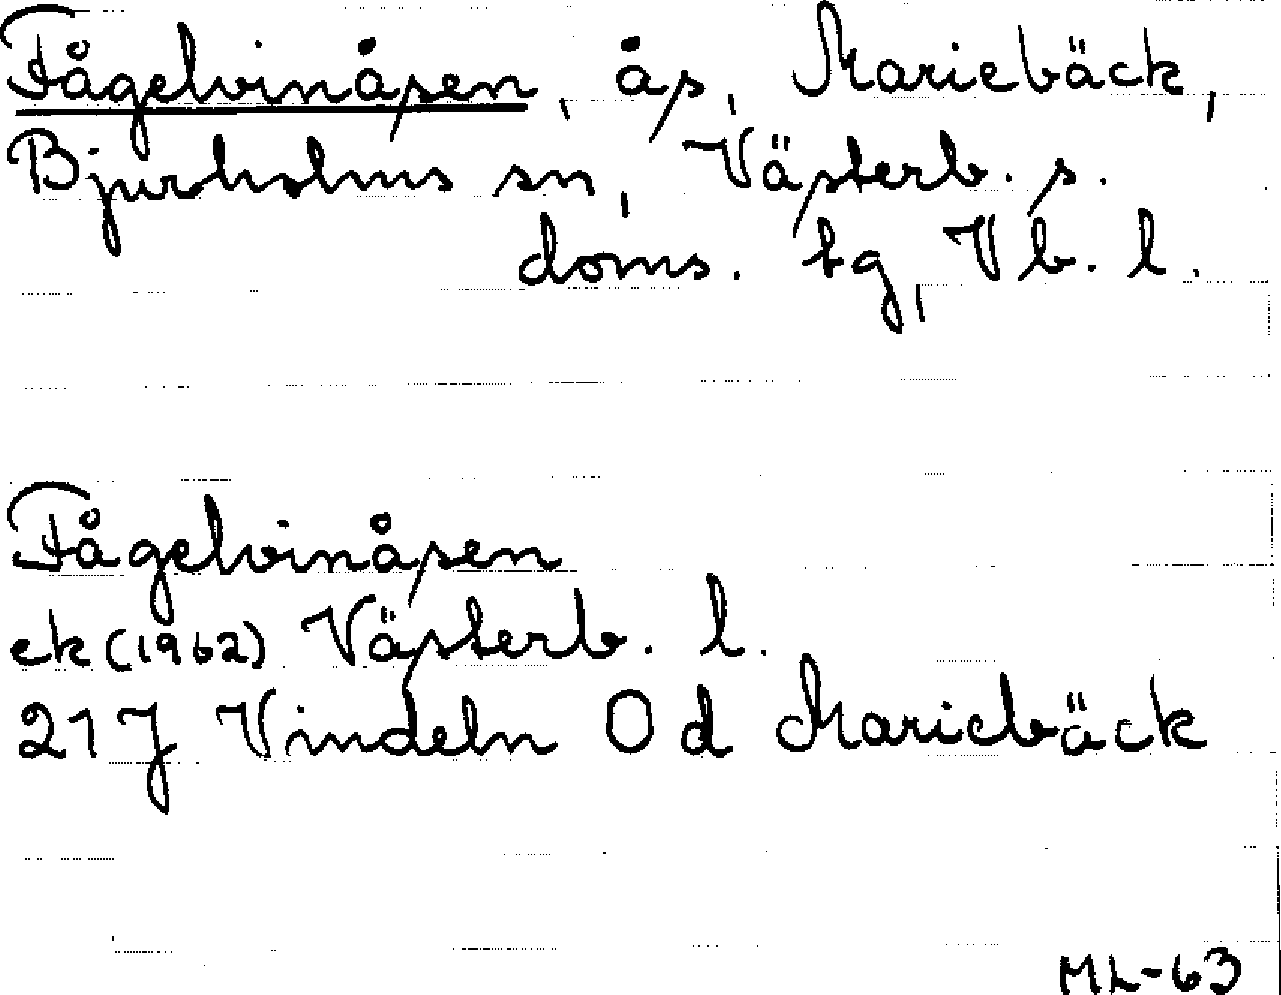 Fågelvinåsen, ås, Mariebäck,
Bjurholms sn, Västerb. s.
doms. tg, Vb. l.
Fågelvinåsen
ek (1962) Västerb. l.
21J Vindeln 0d Mariebäck
ML-63